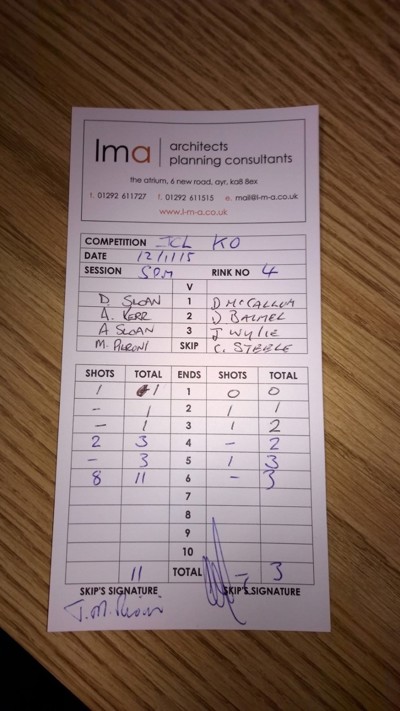 lma architects planning consultants
the atrium, 6 new road, ayr, ka8 8ex
t. 01292 611727 f. 01292 611515 e. mail@l-m-a.co.uk
www.l-m-a.co.uk
COMPETITION ICL KO
DATE 12/1/15
SESSION 5PM RINK NO 4
V
D SLOAN 1 D McCALLUM
A. KERR 2 J
A SLOAN 3 J WYLIE
M. SKIP C. STEELE
SHOTS TOTAL ENDS SHOTS TOTAL
1 1 1 0 0
- 1 2 1 1
- 1 3 1 2
2 3 4 - 2
- 3 5 1 3
8 11 6 - 3
7
8
9
10
11 TOTAL 3
SKIP'S SIGNATURE SKIP'S SIGNATURE